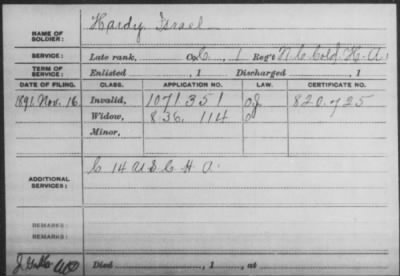 Hardy, Israel
NAME OF SOLDIER:
SERVICE: Late rank, Co. C, 1 Reg't N.C. Cold. H. A.
TERM OF SERVICE: Enlisted , 1 Discharged , 1
DATE OF FILING. CLASS. APPLICATION NO. LAW. CERTIFICATE NO.
1891 Nov. 16. Invalid, 1071351 820.725
Widow, 836.114
Minor,
C 14 U S C H A.
ADDITIONAL SERVICES:
REMARKS:
REMARKS:
Died , 1 , at